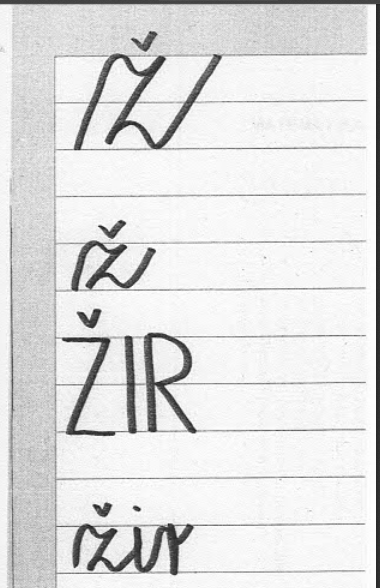 Ž
ž
ŽIR
žir